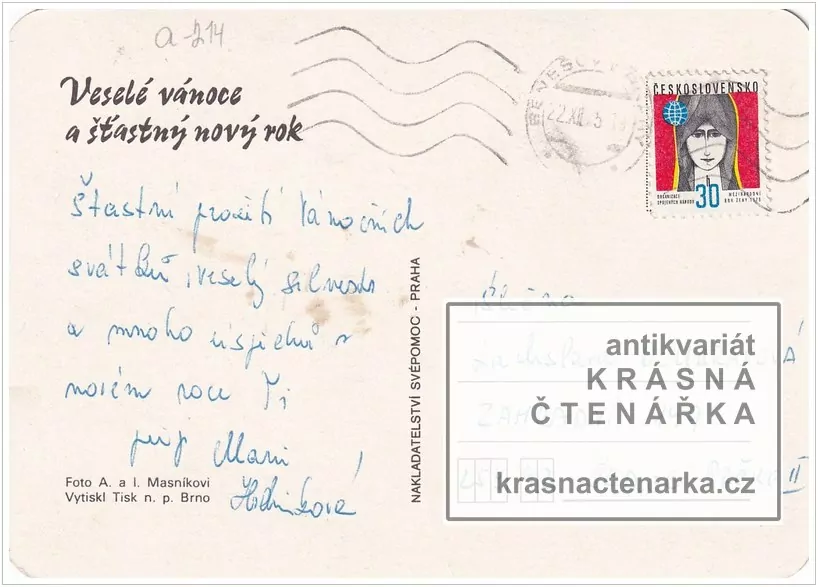 a-214
Veselé vánoce
a šťastný nový rok
BENEŠOV
22.XII.
ČESKOSLOVENSKO
ORGANIZACE
SPOJENÝCH NÁRODŮ
30
MEZINÁRODNÍ
ROK ŽENY 1975
Šťastné prožití Vánočních
svátků, veselý silvestr
a mnoho úspěchů v
novém roce Ti
přeje Marie
NAKLADATELSTVÍ SVÉPOMOC - PRAHA
Foto A. a I. Masníkovi
Vytiskl Tisk n. p. Brno
antikvariát
KRÁSNÁ
ČTENÁŘKA
krasnactenarka.cz
II